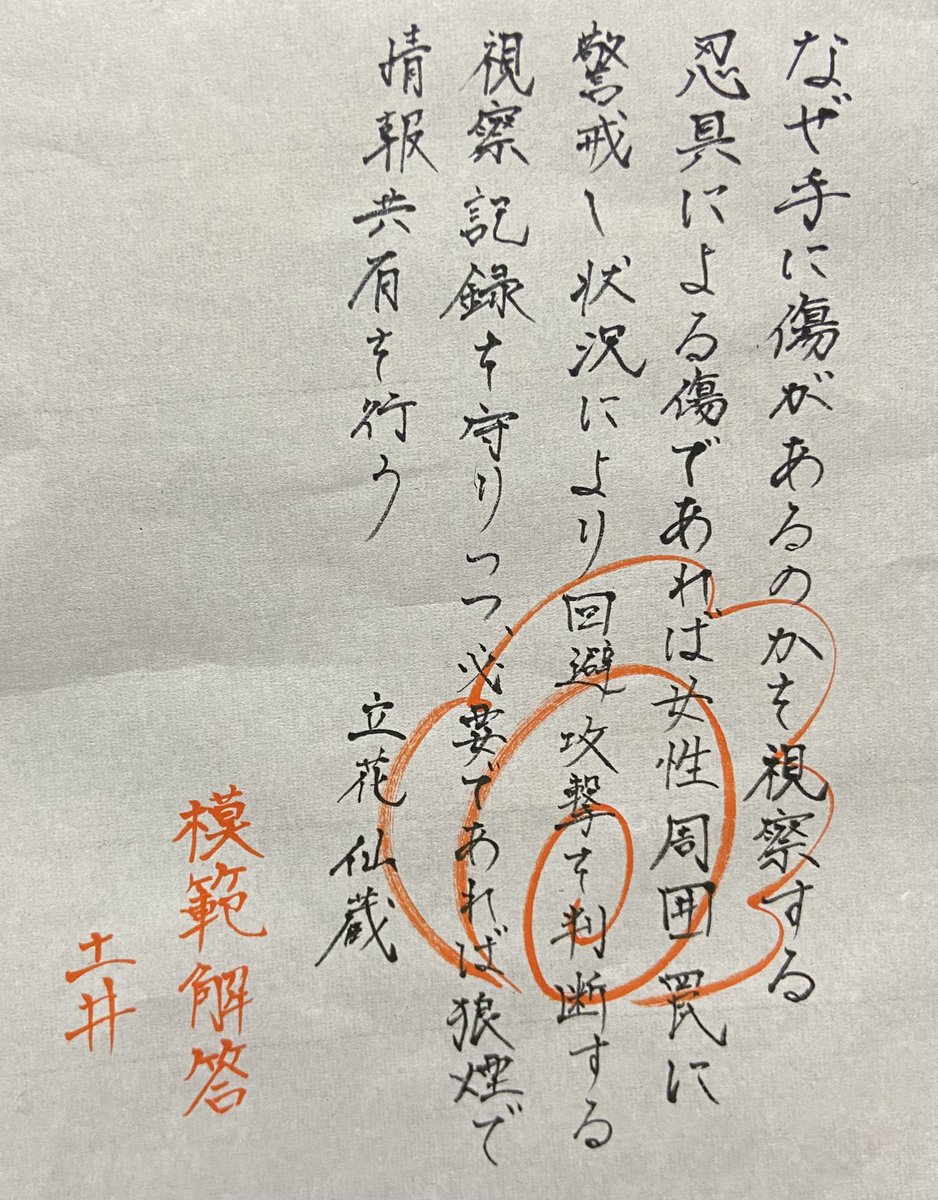 なぜ手に傷があるのかを視察する
忍具による傷であれば女性周囲 罠に
警戒し状況により回避 攻撃を判断する
視察記録を守りつつ、必要であれば狼煙で
情報共有を行う
立花仙蔵
模範解答
土井